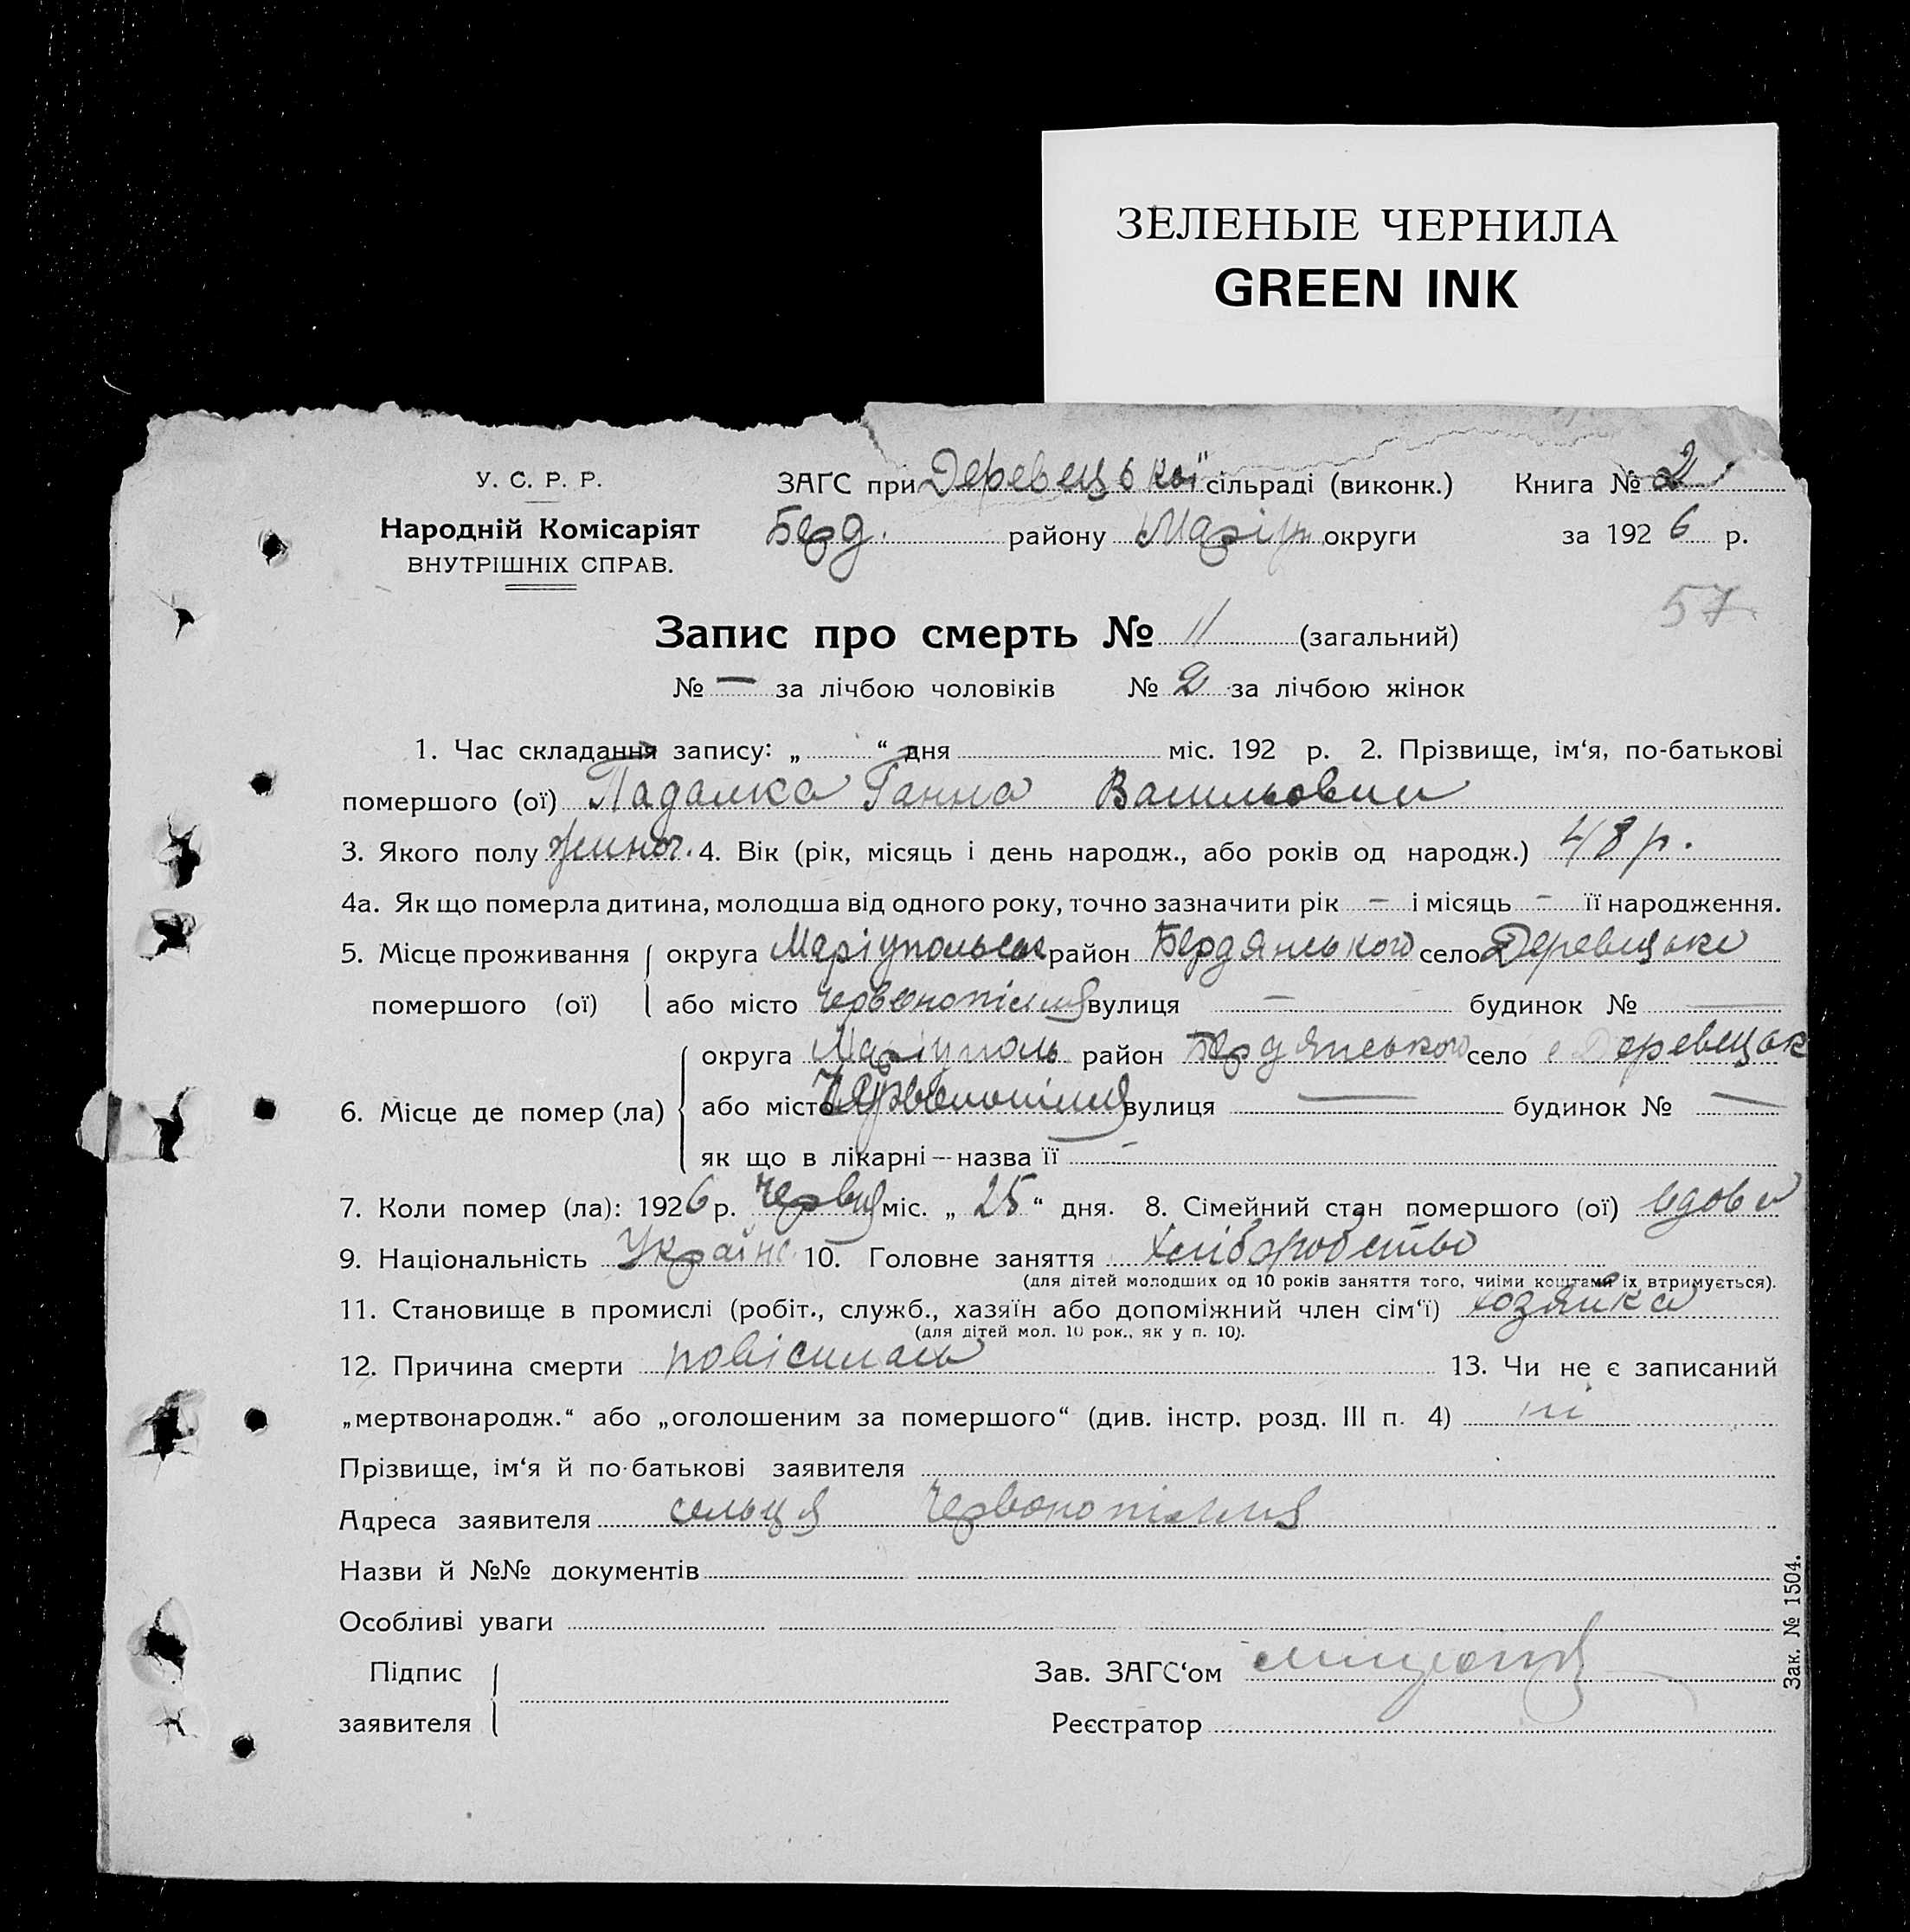 ЗЕЛЕНЫЕ ЧЕРНИЛА
GREEN INK
У. С. Р. Р.
Народній Комісаріят
ВНУТРІШНІХ СПРАВ.
ЗАГС при Деревецької сільраді (виконк.) Книга № 2
Берд. району Маріуп. округи за 1926 р.
57
Запис про смерть № 11 (загальний)
№ — за лічбою чоловіків № 2 за лічбою жінок
1. Час складання запису: „ “ дня міс. 192 р. 2. Прізвище, ім‘я, по-батькові
помершого (ої) Падалка Ганна Васильовни
3. Якого полу жиноч. 4. Вік (рік, місяць і день народж., або років од народж.) 48 р.
4а. Як що померла дитина, молодша від одного року, точно зазначити рік – і місяць – її народження.
5. Місце проживання округа Маріупольськ район Бердянського село Деревецьке
помершого (ої) або місто Червонопілля вулиця — будинок № —
округа Маріуполь район Бердянського село Деревецьк
6. Місце де помер (ла) або місто Червонопілля вулиця — будинок № —
як що в лікарні — назва її –
7. Коли помер (ла): 1926 р. Червця міс. „ 25 “ дня. 8. Сімейний стан помершого (ої) вдова
9. Національність Україн. 10. Головне заняття Хліборобство
(для дітей молодших од 10 років заняття того, чиїми коштами їх втримується).
11. Становище в промислі (робіт., служб., хазяїн або допоміжний член сім‘ї) хозяйка
(для дітей мол. 10 рок., як у п. 10).
12. Причина смерти повісилась 13. Чи не є записаний
„мертвонародж.“ або „оголошеним за помершого“ (див. інстр. розд. III п. 4) ні
Прізвище, ім‘я й по-батькові заявителя
Адреса заявителя сельця Червонопілля
Назви й №№ документів
Особливі уваги
Підпис
заявителя
Зав. ЗАГС‘ом
Реєстратор
Зак. № 1504.